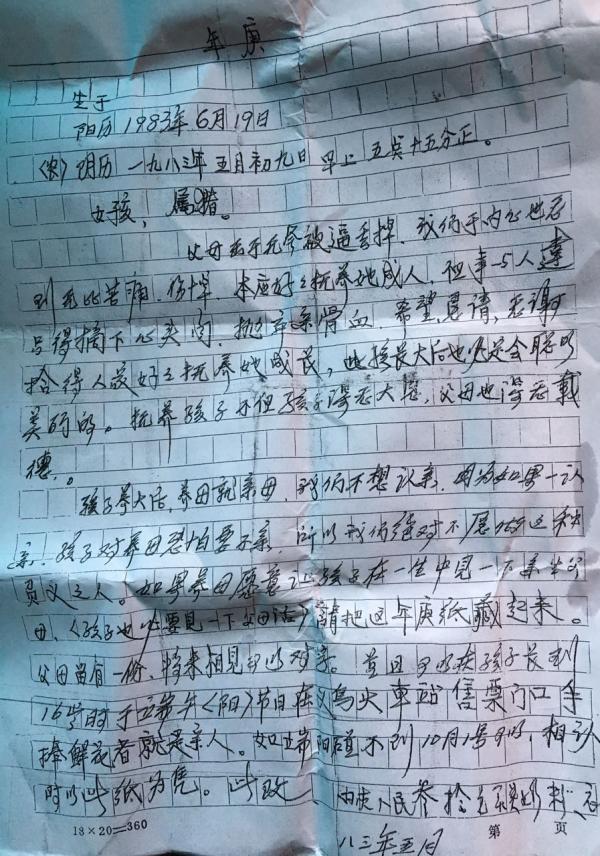 年庚
生于
阳历1983年6月19日
〈农〉阴历 一九八三年五月初九日 早上 五点十五分正。
女孩，属猪。
父母出于无奈被逼丢掉，我们于内心也感
到无比苦痛、伤悲，本应好好抚养她成人，但事与人违
只得摘下心头肉，抛弃亲骨血，希望、恳请、感谢
拾得人最好好抚养她成长，此孩长大后也一定是会聪明
美丽的。抚养孩子不但孩子得感大恩，父母也得感戴
德。
孩子养大后，养母就亲母，我们不想认亲，因为如果一认
亲，孩子对养母恐怕要不亲，所以我们绝对不愿做这种
负义之人。如果养母愿意让孩子在一生中见一下亲生父
母，〈孩子也必要见一下父母话〉请把这年庚纸藏起来。
父母留有一份，将来相见可以对亲。并且可以候孩子长到
16岁时于 〈阳〉节日在义乌火车站售票门口手
捧鲜花者就是亲人。如 阳 碰不到10月1号可以，相认
时以此纸为凭。此致 人民 拾
八三年五月
18×20=360 第 页